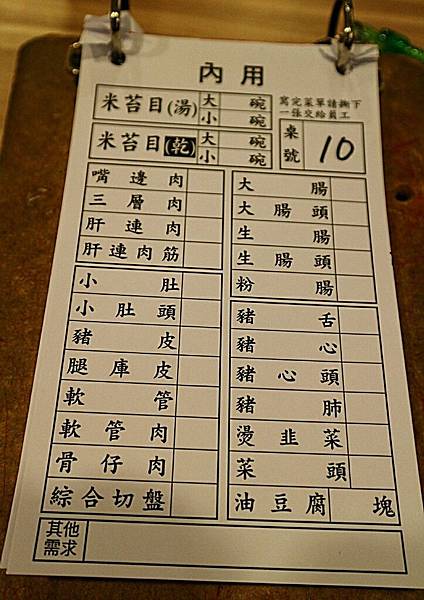 內用
米苔目(湯) 大 碗
小 碗
米苔目(乾) 大 碗
小 碗
寫完菜單請撕下
一張交給員工
桌號 10
嘴邊肉
三層肉
肝連肉
肝連肉筋
小肚
小肚頭
豬皮
腿庫皮
軟管
軟管肉
骨仔肉
綜合切盤
大腸
大腸頭
生腸
生腸頭
粉腸
豬舌
豬心
豬心頭
豬肺
燙韭菜
菜頭
油豆腐 塊
其他
需求